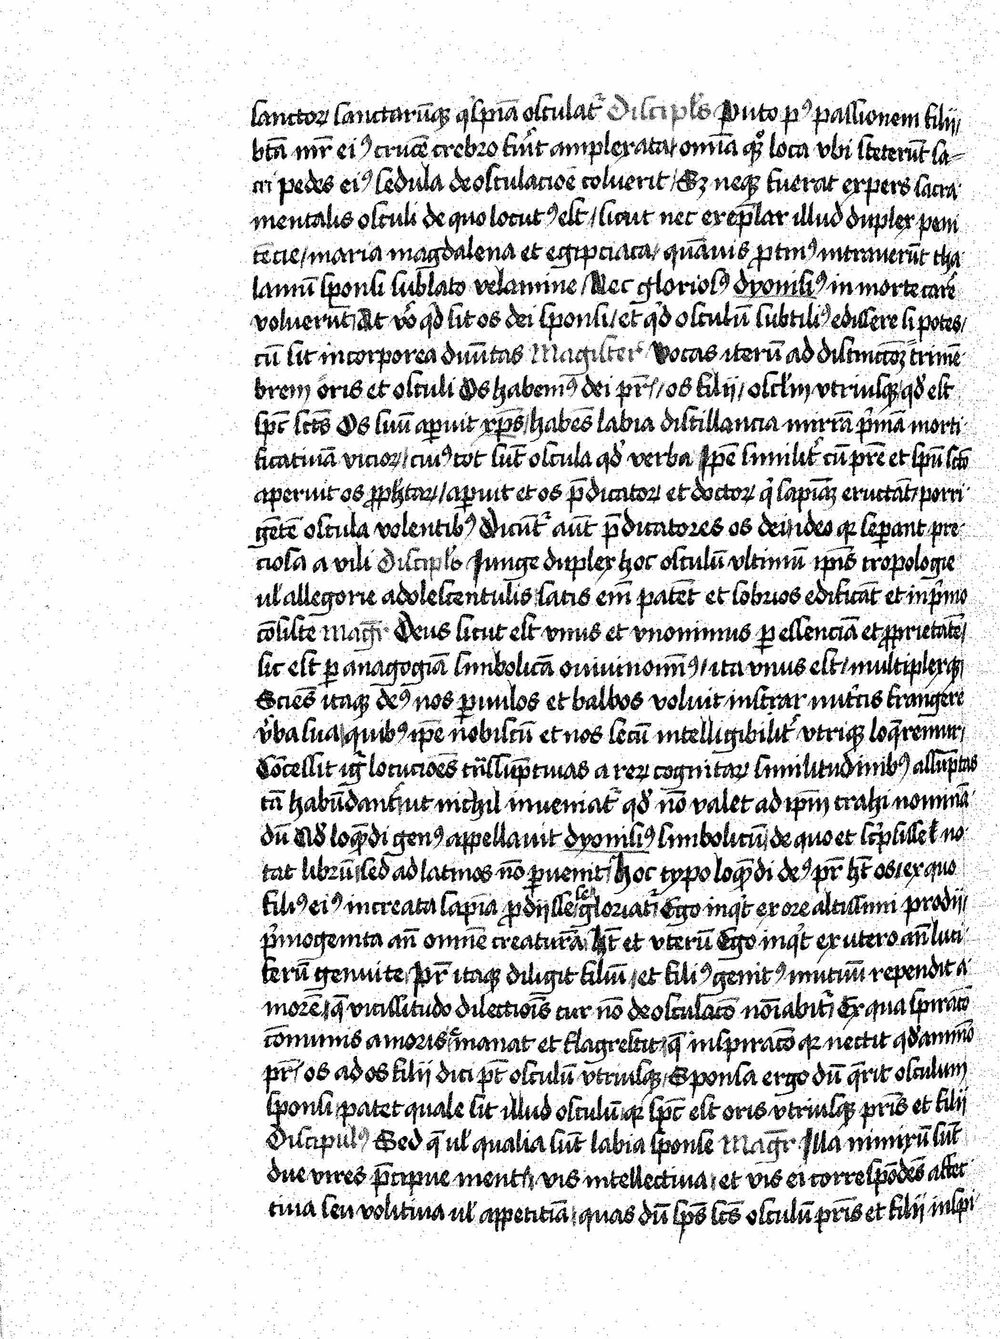 sanctoꝝ sanctarūqꝫ q̛sṗia osculatᷣ Discipl̛s Puto pꝰ passionem filij/
btā mr̄ eiꝰ crucē crebro fuīt amplexata/ omīa qꝫ loca vbi steterūt sa-
cri pedes eiꝰ sedula deosculacioē coluerit/ Sꝫ neqꝫ fuerat expers sacra
mentalis osculi de quo locutꝰ est/ sicut nec exeplar illud duplex peni
tēcie/ maria magdalena et egipciaca/ quāuis ꝓtinꝰ intrauerūt tha
lamū sponsi sublato velamine/ Nec gloriosꝰ dyonisiꝰ in morte carē
voluerūt/ At v̊o qd̛ sit os dei sponsi/ et qd̛ osculū subtiliꝰ edissere si potes/
cū sit incorporea diuītas Magister Vocas iterū ad distinctōꝫ trime
brem oris et osculi Os habemꝰ dei pr̄is/ os filij/ oscl̛m vtriusqꝫ qd̛ est
spc̄ scts̄ Os suū aꝑuit xp̄s/ habēs labia distillancia mirrā p̛mā morti
ficatiuā vicioꝝ/ cuiꝰ tot sūt oscula qd̛ verba Ip̄e similitᷣ cū pr̄e et spū scō
aperuit os ꝓphetaꝝ/ aꝑuit et os p̄dicatoꝝ et doctoꝝ q̛ sapiāꝫ eructāt/ porri
gētē oscula volentibꝰ Dicūtᷣ aūt p̄dicatores os dei/ ideo qꝛ seꝑant pre
ciosa a vili Discipl̛s Iunge duplex hoc osculū vltimū ipīs tropologie
ul̛ allegorie adolescentulis/ satis em̄ patēt et sobrios edificāt et in p̛mo
cōsiste Magr̄ Deus sicut est vnus et vnonimus ꝑ essenciā et ꝓprietatē/
sic est ꝑ anagogiā simbolicā omniuomꝰ/ ita vnus est/ multiplexqꝫ
Sciēs itaqꝫ deꝰ nos ꝑuulos et balbos voluit instrar nutcis frangere
v̛ba sua/ quibꝰ ipē nobiscū et nos secū intelligibilitᷣ vtriqꝫ loqremur/
Cōcessit igr̄ locucioēs trāssūptiuas a reꝝ cognitaꝝ similitudinibꝰ assūptas
tā habūdant̛/ ut nichil inueniatᷣ qd̛ nō valet ad ip̄m trahi nominā
dū Qd̛ loquēdi genꝰ appellauit dyonisiꝰ simbolicū/ de quo et scp̛sisse se no
tat librū/ sed ad latinos nō ꝑuenit/ Hoc typo loquēdi deꝰ pr̄ ht̄ os/ ex quo
filiꝰ eiꝰ increata sapia ꝓdijsse se gloriatᷣ Ego inqt̛ ex ore altissimi prodij/
p̛mogenita an̄ omnē creaturā/ Ht̄ et vterū Ego inqt̛ ex utero an̄ luci
ferū genui te/ Pr̄ itaqꝫ diligit filiū/ et filiꝰ genitꝰ mutuū rependit a
morē/ q̄ vicissitudo dilectiois cur nō deosculacō noīabitᷣ Ex qua spiracō
cōmunis amoris emanat et flagrescit/ q̄ inspiracō qꝛ nectit qd̛āmō
pr̄is/ os ad os filij dici pt̄ osculū vtriusqꝫ/ Sponsa ergo dū q̄rit osculum
sponsi/ patet quale sit illud osculū/ qꝛ spc̄ est oris vtriusqꝫ pr̄is et filij
Discipulꝰ Sed q̄ ul̛ qualia sūt labia sponse Magr̄ Illa nimirū sūt
due vires p̄cipue mentis/ vis intellectiua/ et vis ei correspōdēs affec
tiua seu volitiua ul̛ appetitiā/ quas dū spc̄s scts̄ osculū pr̄is et filij inspi